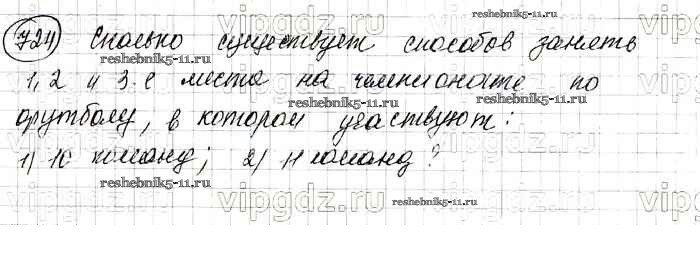 724 Сколько существует способов занять
1, 2 и 3-е места на чемпионате по
футболу, в котором участвуют:
1) 10 команд; 2) 11 команд?
reshebnik5-11.ru
reshebnik5-11.ru
reshebnik5-11.ru
reshebnik5-11.ru
reshebnik5-11.ru
reshebnik5-11.ru
reshebnik5-11.ru
vipgdz.ru
vipgdz.ru
vipgdz.ru
vipgdz.ru